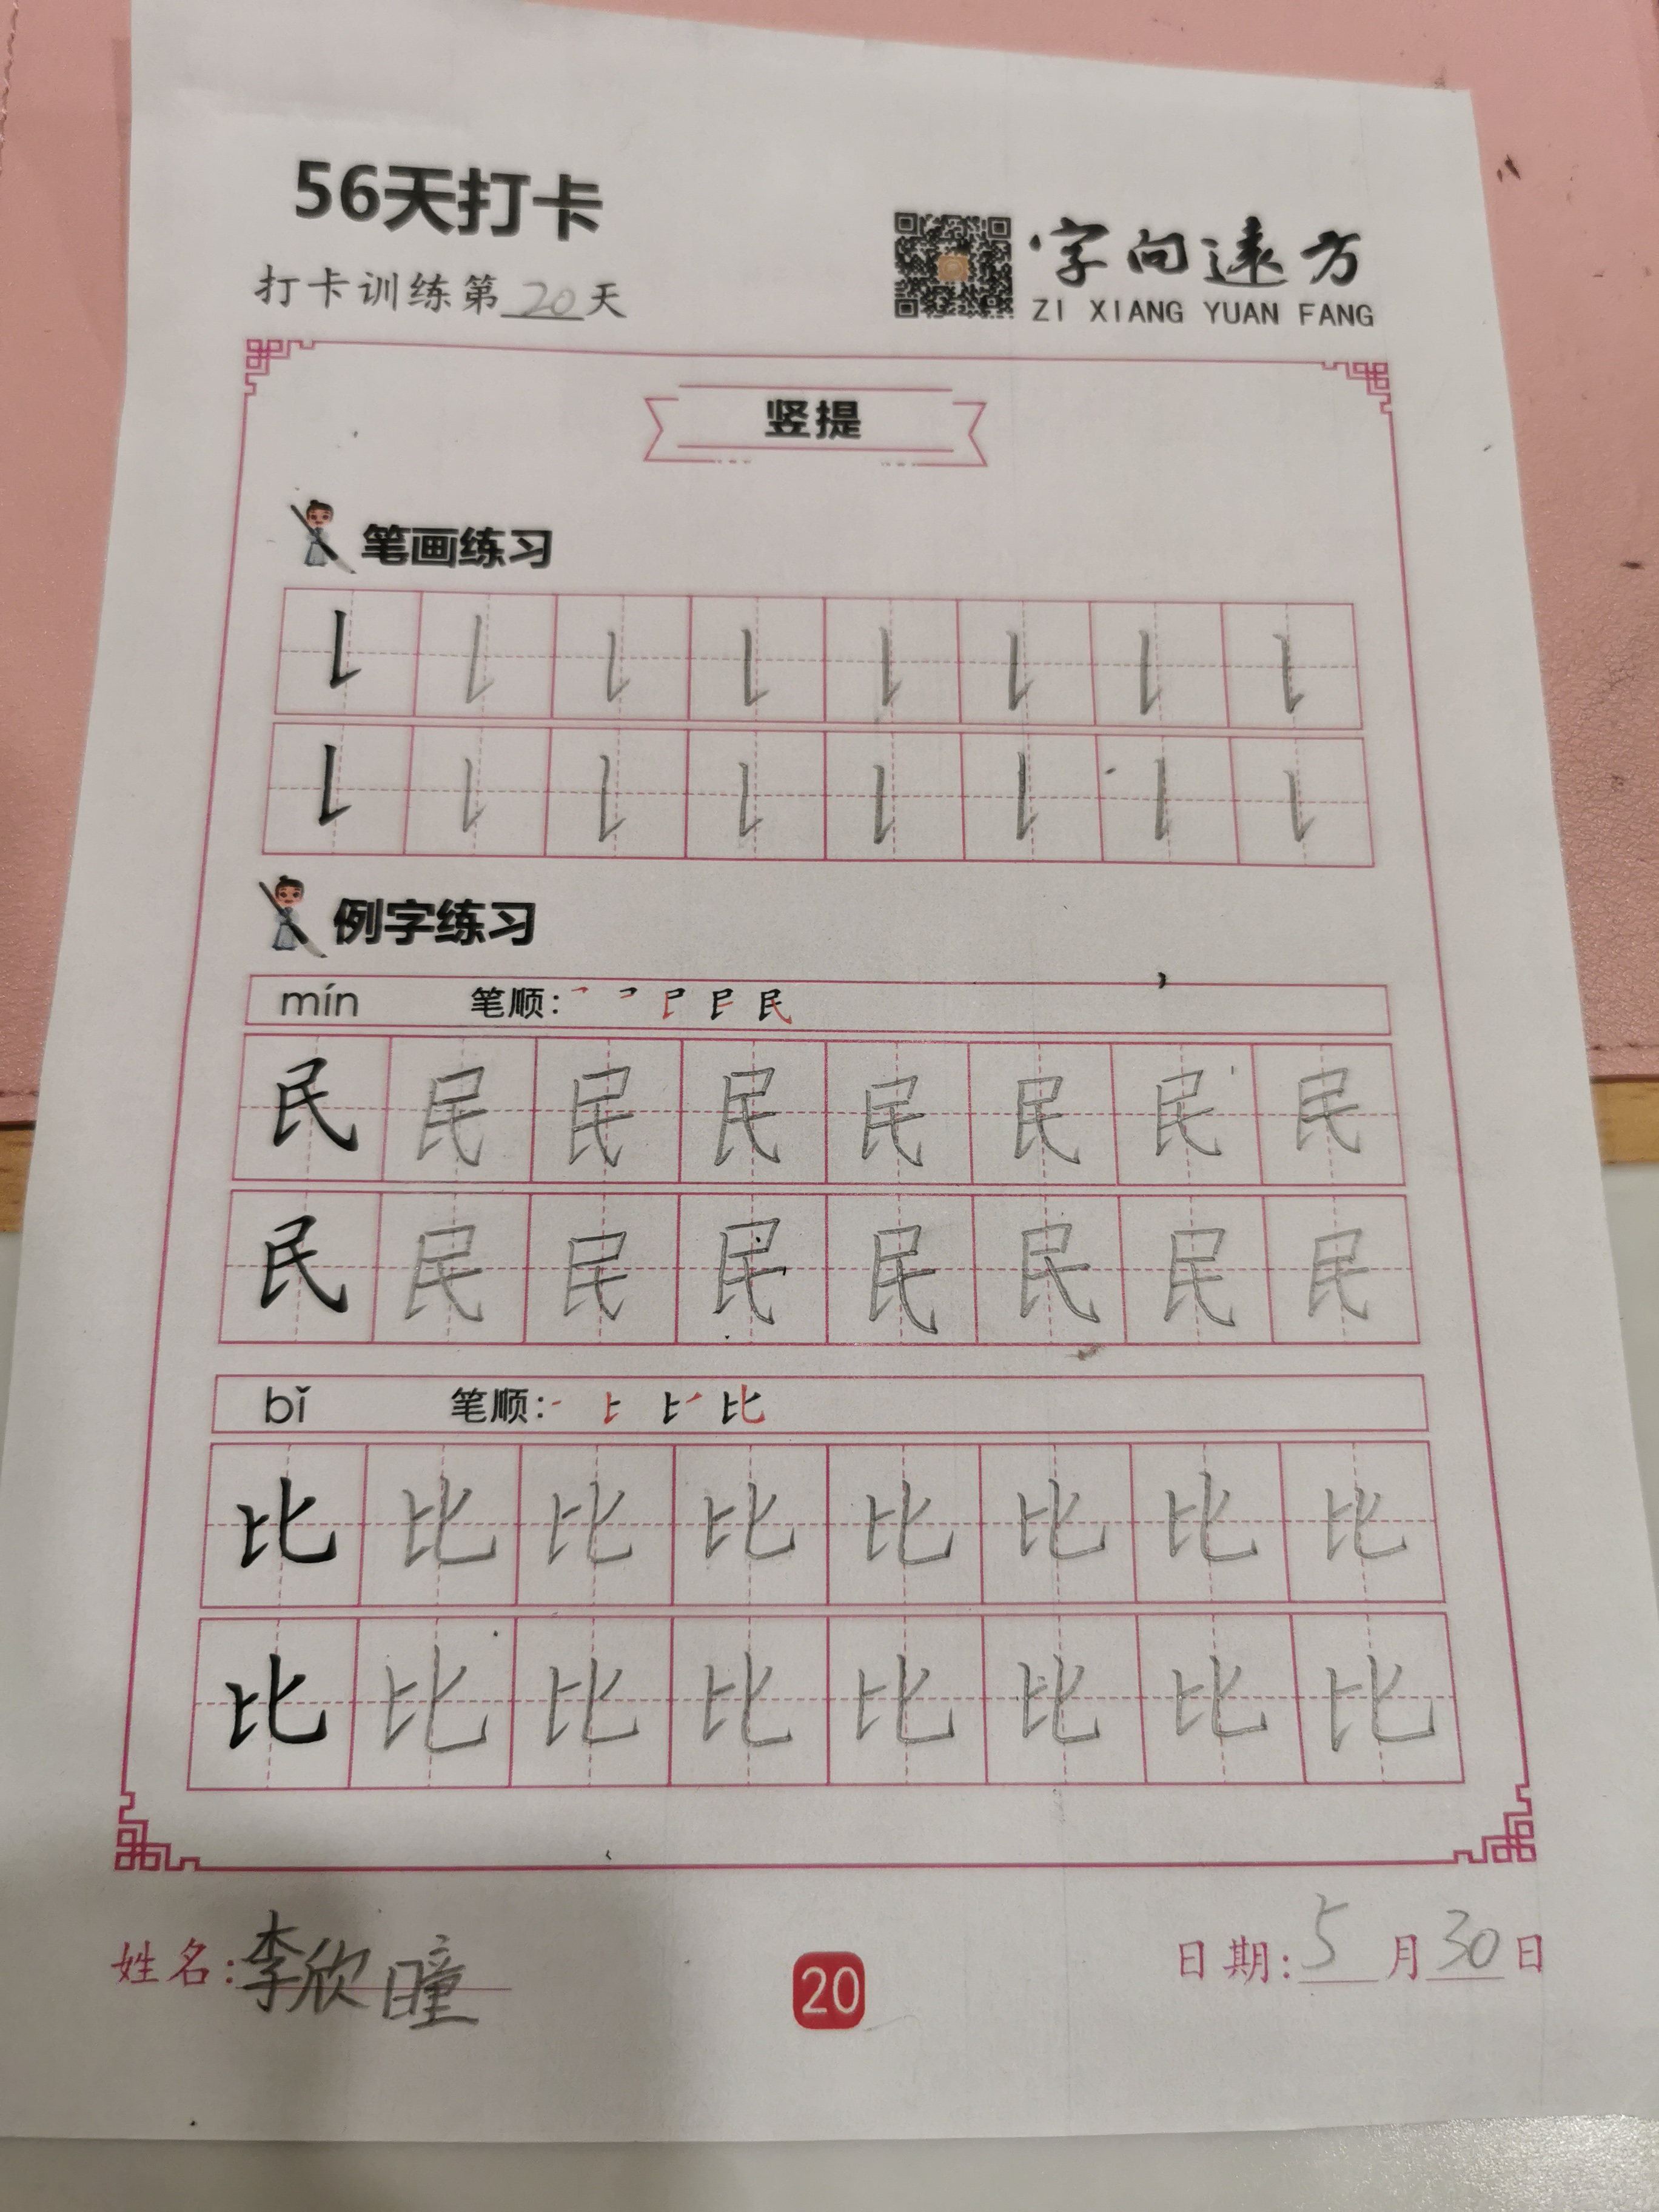 56天打卡
打卡训练第20天
字向远方
ZI XIANG YUAN FANG
竖提
笔画练习
例字练习
mín 笔顺: 民
民 民 民 民 民 民 民 民
民 民 民 民 民 民 民 民
bǐ 笔顺: 比
比 比 比 比 比 比 比 比
比 比 比 比 比 比 比 比
姓名:李欣曈
20
日期:5月30日